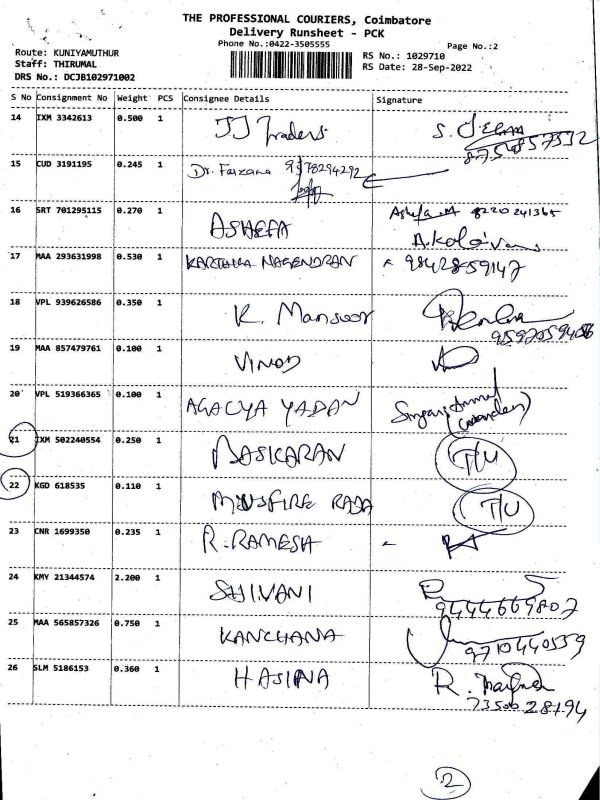 THE PROFESSIONAL COURIERS, Coimbatore
Delivery Runsheet - PCK
Phone No.:0422-3505555
Page No.:2
Route: KUNIYAMUTHUR
Staff: THIRUMAL
DRS No.: DCJB102971002
RS No.: 1029710
RS Date: 28-Sep-2022
S No Consignment No Weight PCS Consignee Details Signature
14 IXM 3342613 0.500 1 JJ Traders
15 CUD 3191195 0.245 1 Dr. Farzana 9578294292
16 SRT 701295115 0.270 1 ASHEFA 8220241365
17 MAA 293631998 0.530 1 KARTHIKA NAGENDRAN 9842859147
18 VPL 939626586 0.350 1 K. Mansoor
19 MAA 857479761 0.100 1 VINOD
20 VPL 519366365 0.100 1 AGACYA YADAN
21 IXM 502240554 0.250 1 BASKARAN T/U
22 KGD 618535 0.110 1 MUSFIRE RAJA T/U
23 CNR 1699350 0.235 1 R.RAMESH
24 KMY 21344574 2.200 1 SHIVANI
9444669807
25 MAA 565857326 0.750 1 KANCHANA
9710440559
26 SLM 5186153 0.360 1 HASINA R.
2